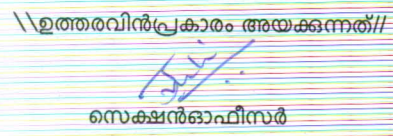 \\ഉത്തരവിൻപ്രകാരം അയക്കുന്നത്//
സെക്ഷൻഓഫീസർ